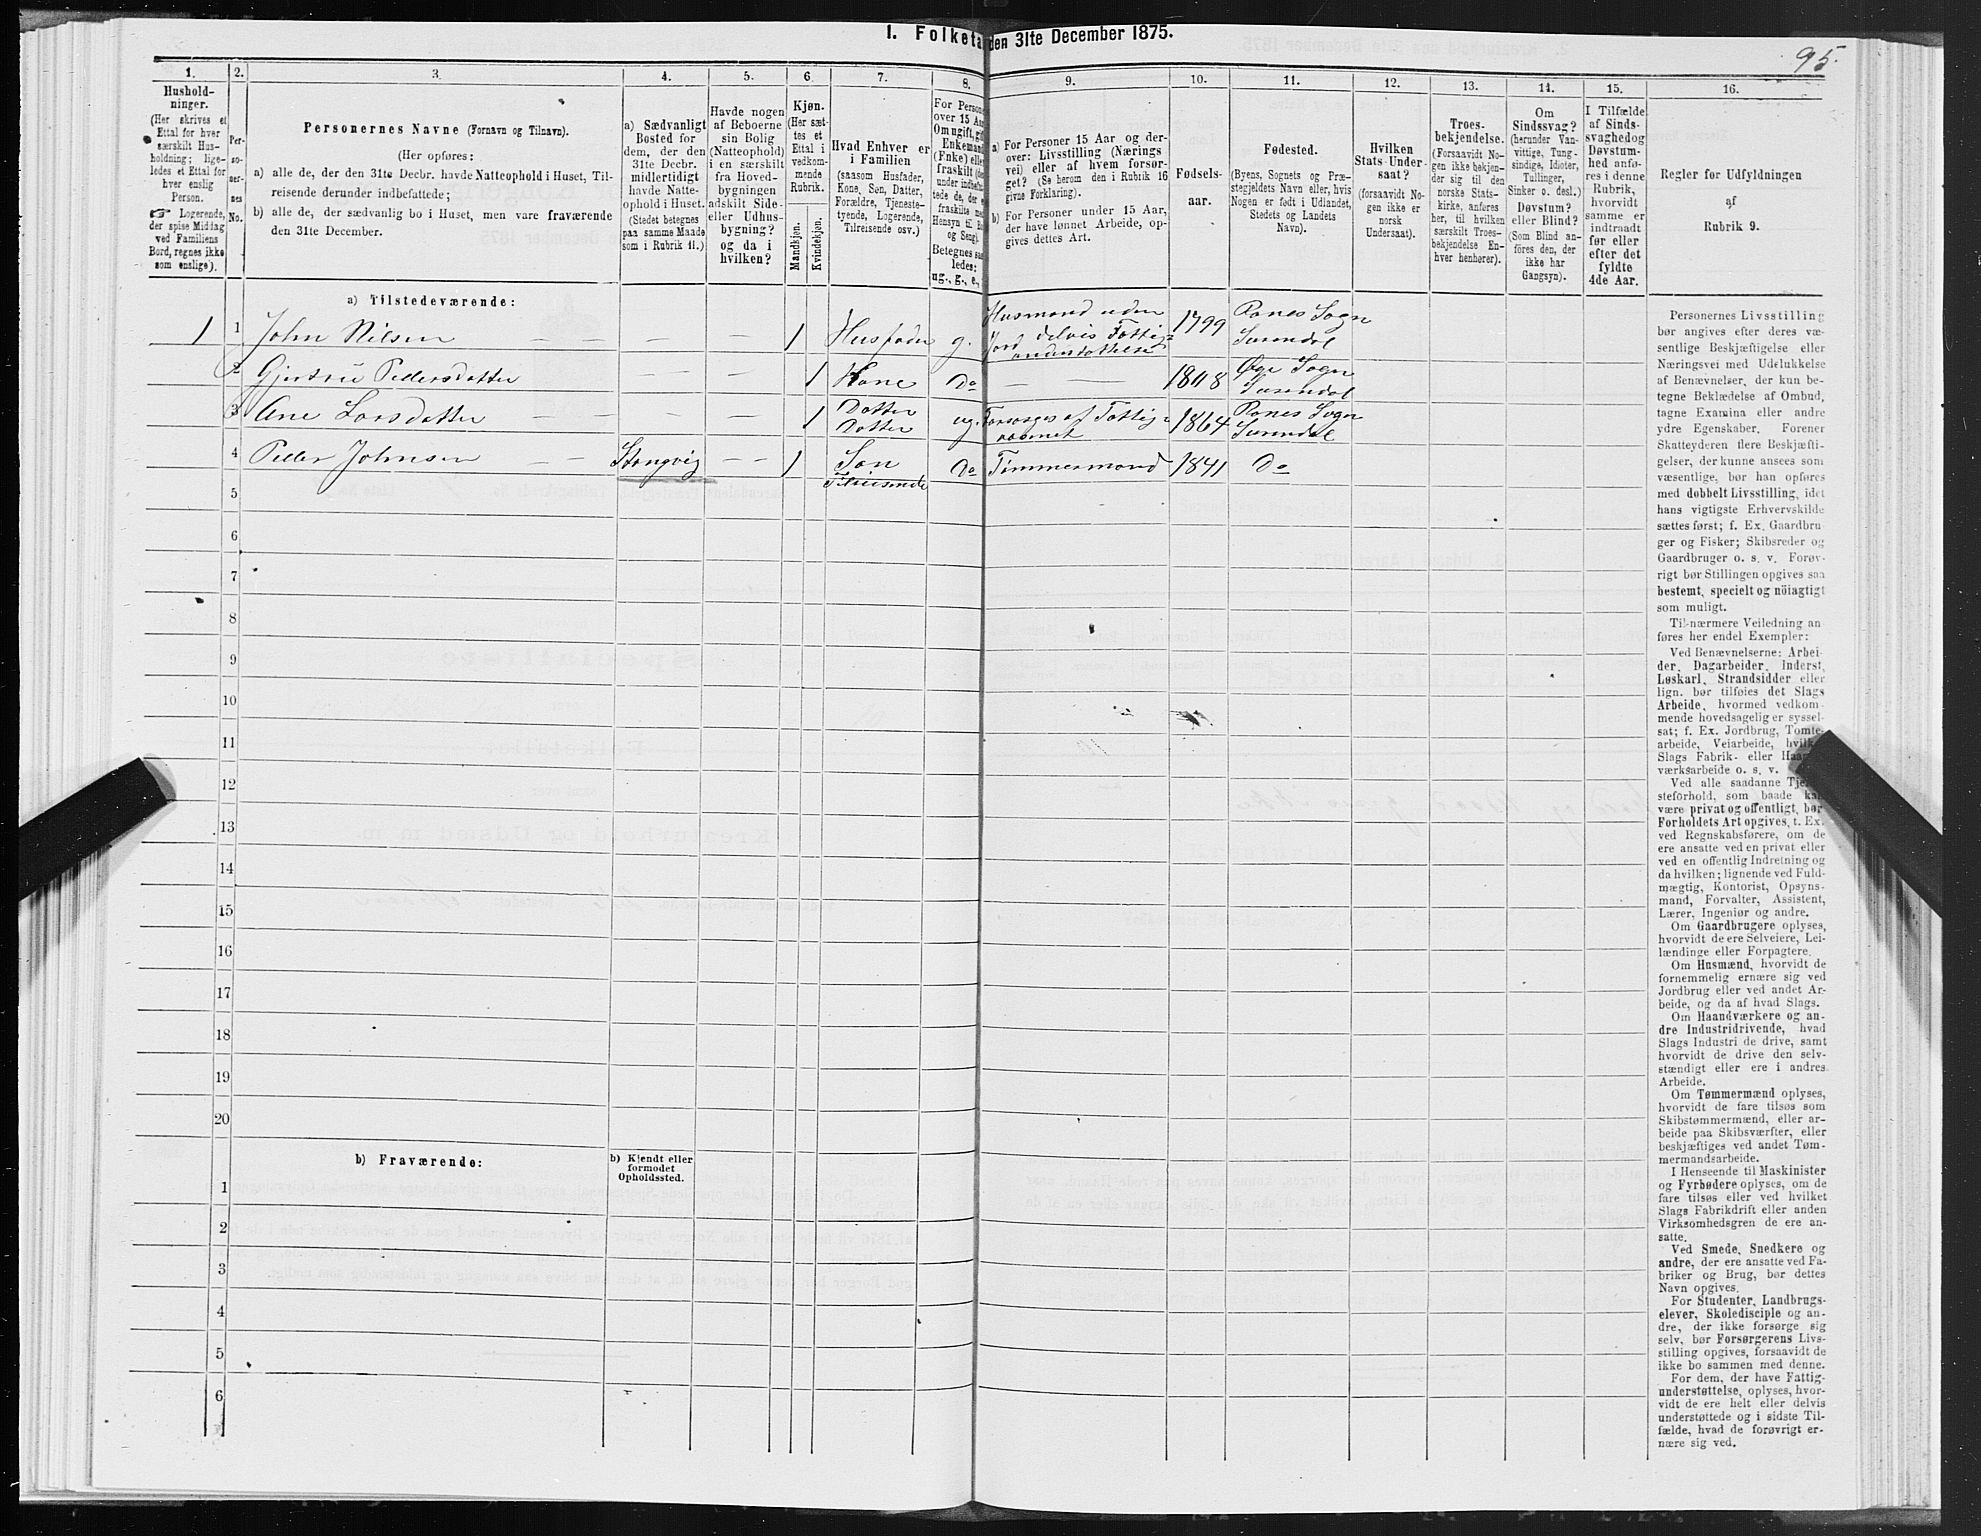 I. Folketæ den 31te December 1875.
95.
1.
2.
3.
4.
5.
6.
7.
8.
9.
10.
11.
12.
13.
14.
15.
16.
Hushold-
ninger.
(Her skrives et
Ettal for hver
særskilt Hus-
holdning; lige-
ledes et Ettal for
hver enslig
Person.
☞ Logerende,
der spise Middag
ved Familiens
Bord, regnes ikke
som enslige).
Per-
so-
ner-
nes
No.
Personernes Navne (Fornavn og Tilnavn).
(Her opføres:
a) alle de, der den 31te Decbr. havde Natteophold i Huset, Til-
reisende derunder indbefattede;
b) alle de, der sædvanlig bo i Huset, men vare fraværende
den 31te December.
a) Sædvanligt
Bosted for
dem, der den
31te Decbr.
midlertidigt
havde Natte-
ophold i Huset.
(Stedet betegnes
paa samme Maade
som i Rubrik 11.)
Havde nogen
af Beboerne
sin Bolig
(Natteophold)
i en særskilt
fra Hoved-
bygningen
adskilt Side-
eller Udhus-
bygning?
og da i
hvilken?
Kjøn.
(Her sæt-
tes et
Ettal i
vedkom-
mende
Rubrik.
Mandkjøn.
Kvindekjøn.
Hvad Enhver er
i Familien
(saasom Husfader,
Kone, Søn, Datter,
Forældre, Tjeneste-
tyende, Logerende,
Tilreisende osv.)
For Person
over 15 Aar
Om ugift, gif
Enkemand
(Enke) elle
fraskilt (de
under indbef
tede de, der e
fraskilte me
Hensyn til Bo
og Seng).
Betegnes saa
ledes:
ug., g., e.,
a) For Personer 15 Aar og der-
over: Livsstilling (Nærings
vei) eller af hvem forsør-
get? (Se herom den i Rubrik 16
givne Forklaring).
b) For Personer under 15 Aar,
der have lønnet Arbeide, op-
gives dettes Art.
Fødsels-
aar.
Fødested.
(Byens, Sognets og Præ-
stegjeldets Navn eller, hvis
Nogen er født i Udlandet,
Stedets og Landets
Navn).
Hvilken
Stats Under-
saat?
(forsaavidt No-
gen ikke er
norsk
Undersaat).
Troes-
bekjendelse.
(Forsaavidt No-
gen ikke bekjen-
der sig til den
norske Stats-
kirke, anføres
her, til hvilken
særskilt Troes-
bekjendelse En-
hver henhører).
Om
Sindssvag?
(herunder Van-
vittige, Tung-
sindige, Idioter,
Tullinger,
Sinker o. desl.)
Døvstum?
eller Blind?
(Som Blind an-
föres den, der
ikke har
Gangsyn).
I Tilfælde
af Sinds-
svaghed og
Døvstum-
hed anfø-
res i denne
Rubrik,
hvorvidt
samme er
indtraadt
før eller
efter det
fyldte
4de Aar.
Regler for Udfyldningen
af
Rubrik 9.
a) Tilstedeværende:
1 1 John Nilsen — — — — 1 Husfader g. Husmand uden Jord delvis Fattig= understøttelse 1799 Ranes Sogn Surendal
2 Gjertrue Pedersdatter — — — 1 Kone Do — — 1808 Øye Sogn Surendal
3 Ane Larsdatter — — — — 1 Datter Datter ug. Forsørges af Fattig= væsenet 1864 Ranes Sogn Surendal
4 Peder Johnsen — — Stangvig — — 1 Søn Tilreisende Do Tømmermand 1841 Do
5
6
7
8
9
10
11
12
13
14
15
16
17
18
19
20
b) Fraværende:
b) Kjendt eller
formodet
Opholdssted.
1
2
3
4
5
6
Personernes Livsstilling
bør angives efter deres væ-
sentlige Beskjæftigelse eller
Næringsvei med Udelukkelse
af Benævnelser, der kun be-
tegne Beklædelse af Ombud,
tagne Examina eller andre
ydre Egenskaber. Forener
Skatteyderen flere Beskjæfti-
gelser, der kunne ansees som
væsentlige, bør han opføres
med dobbelt Livsstilling, idet
hans vigtigste Erhvervskilde
sættes først; f. Ex. Gaardbru
ger og Fisker; Skibsreder og
Gaardbruger o. s. v. Forøv-
rigt bør Stillingen opgives saa
bestemt, specielt og nöiagtigt
som muligt.
Til nærmere Veiledning an
føres her endel Exempler:
Ved Benævnelserne: Arbei-
der, Dagarbeider, Inderst,
Løskarl, Strandsidder eller
lign. bør tilføies det Slags
Arbeide, hvormed vedkom-
mende hovedsagelig er syssel-
sat; f. Ex. Jordbrug, Tomte-
arbeide, Veiarbeide, hvilk
Slags Fabrik- eller Haa
værksarbeide o. s. v.
Ved alle saadanne Tje
steforhold, som baade ka
være privat og offentligt, bør
Forholdets Art opgives, t. Ex.
ved Regnskabsførere, om de
ere ansatte ved en privat eller
ved en offentlig Indretning og
da hvilken; lignende ved Fuld-
mægtig, Kontorist, Opsyns-
mand, Forvalter, Assistent,
Lærer, Ingeniør og andre.
Om Gaardbrugere oplyses,
hvorvidt de ere Selveiere, Lei-
lændinge eller Forpagtere.
Om Husmænd, hvorvidt de
fornemmelig ernære sig ved
Jordbrug eller ved andet Ar-
beide, og da af hvad Slags.
Om Haandværkere og an-
dre Industridrivende, hvad
Slags Industri de drive, samt
hvorvidt de drive den selv-
stændigt eller ere i andres
Arbeide.
Om Tømmermænd oplyses,
hvorvidt de fare tilsøs som
Skibstømmermænd, eller ar-
beide paa Skibsværfter, eller
beskjæftiges ved andet Töm-
mermandsarbeide.
I Henseende til Maskinister
og Fyrbødere oplyses, om de
fare tilsøs eller ved hvilket
Slags Fabrikdrift eller anden
Virksomhedsgren de ere an-
satte.
Ved Smede, Snedkere og
andre, der ere ansatte ved Fa-
briker og Brug, bør dettes
Navn opgives.
For Studenter, Landbrugs-
elever, Skoledisciple og an-
dre, der ikke forsørge sig
selv, bør Forsørgerens Livs-
stilling opgives, forsaavidt de
ikke bo sammen med denne.
For dem, der have Fattig-
understøttelse, oplyses, hvor-
vidt de ere helt eller delvis
understøttede og i sidste Til-
fælde, hvad de forøvrigt er-
nære sig ved.